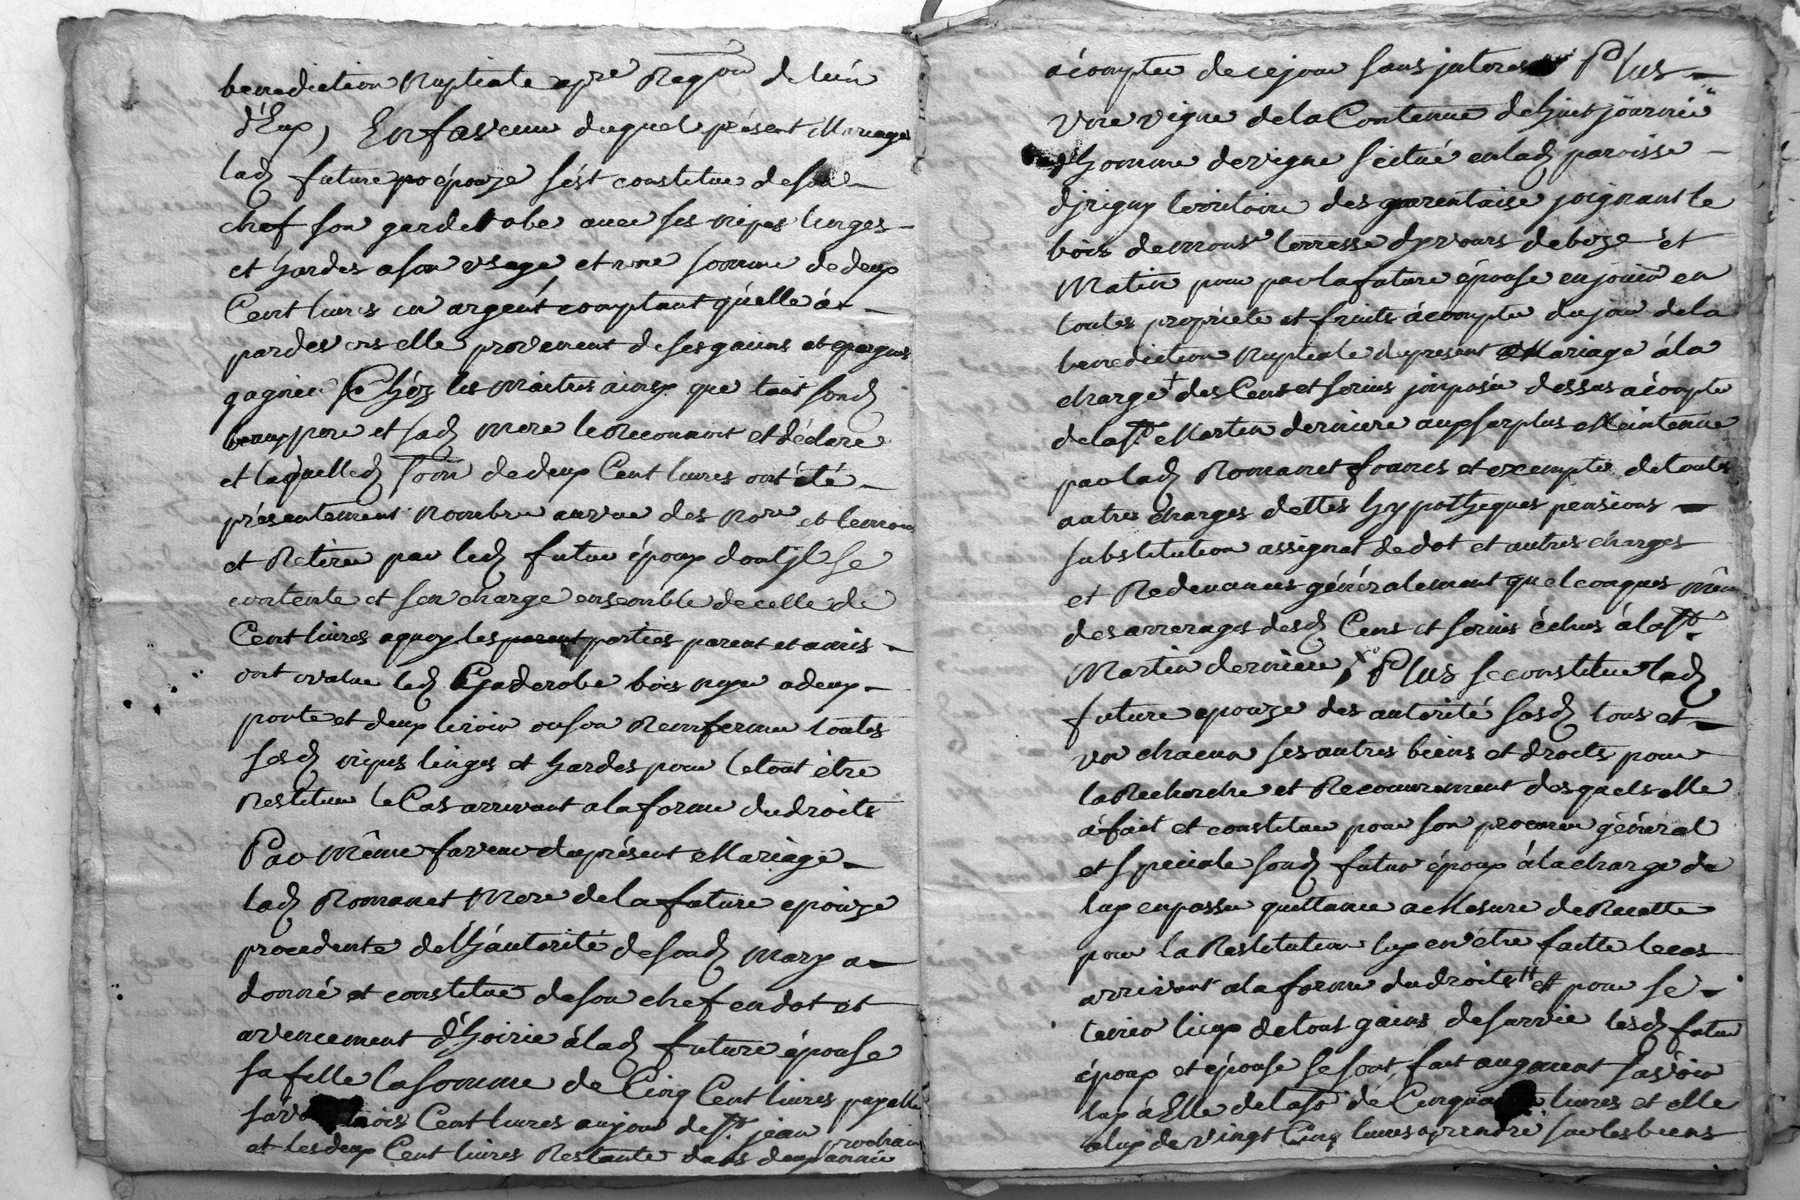 benediction Nuptiale apre Reqon de lun
d'Eux, En faveur duquel présent Mariage
lad future epouze s'est constitue de son
chef son garderobe avec ses nipes linges
et hardes a son usage et une somme de deux
Cent livres en argent comptant qu'elle à
par devers elle provenant de ses gains et epargnes
gagnier Chéz les Maitres ainsy que tant sond
beauppere et sad mere le Reconnoit et déclare
et laquelled som de deux Cent livres ont été
présentement Nombre au vue des Nore et temoin
et Retiree par led futur époux dont jl se
contente et s'en charge ensemble de celle de
Cent livres a quoy les parties parent et amis
ont evalue led Garderobe bois noyer a deux
porte et deux tiroir ou son Remfermer toutes
sesd nipes linges et hardes pour le tout être
Restituer le Cas arrivant a la forme du droits
Par Même faveur du présent Mariage
lad Romanet Mere de la future epouze
procedente de l'hautorité de sond mary a
donné et constitue de son chef en dot et
avencement d'hoirie à lad future épouse
sa fille la somme de Cinq Cent livres payable
trois Cent livres au jour de St jean prochain
et les deux Cent livres Restante dans deux année
à compter de ce jour sans jnterest Plus
Une vigne de la Contenue de huit journé
d'homme de vigne scitué en lad paroisse
d'jrigny territoire des garentaise joignant le
bois de mons terrasse d'yvours de boze et
Matin pour par la future épouse en jouir en
toutes propriété et fruits à compter du jour de la
benediction Nuptiale du present Mariage à la
charge des Cens et servis jmposée dessus a compte
de la St Martin derniere aux surplus Maintenue
par lad Romanet francs et exempte de toutes
autres charges dettes hypotheques pensions
substitution assignat de dot et autres charges
et Redevances généralement quelconques même
des arrerages desd Cens et servis échus à la St
Martin derniere Plus se constitue lad
future epouze des autorité susd tous et
un chacun ses autres biens et droits pour
la Recherche et Recouvrement des quels elle
à fait et constitue pour son procureur général
et speciale sond futur époux à la charge de
lux en passer quittance a Mesure de Recette
pour la Restitution lux en être faitte le cas
arrivant a la forme du droits et pour se
tenir lieux de tout gains de survie lesd futur
époux et épouse se sont fait augment sasvoir
lux à Elle de la so de Cinquante livres et elle
a lux de vingt Cinq livres a prendre sur les biens